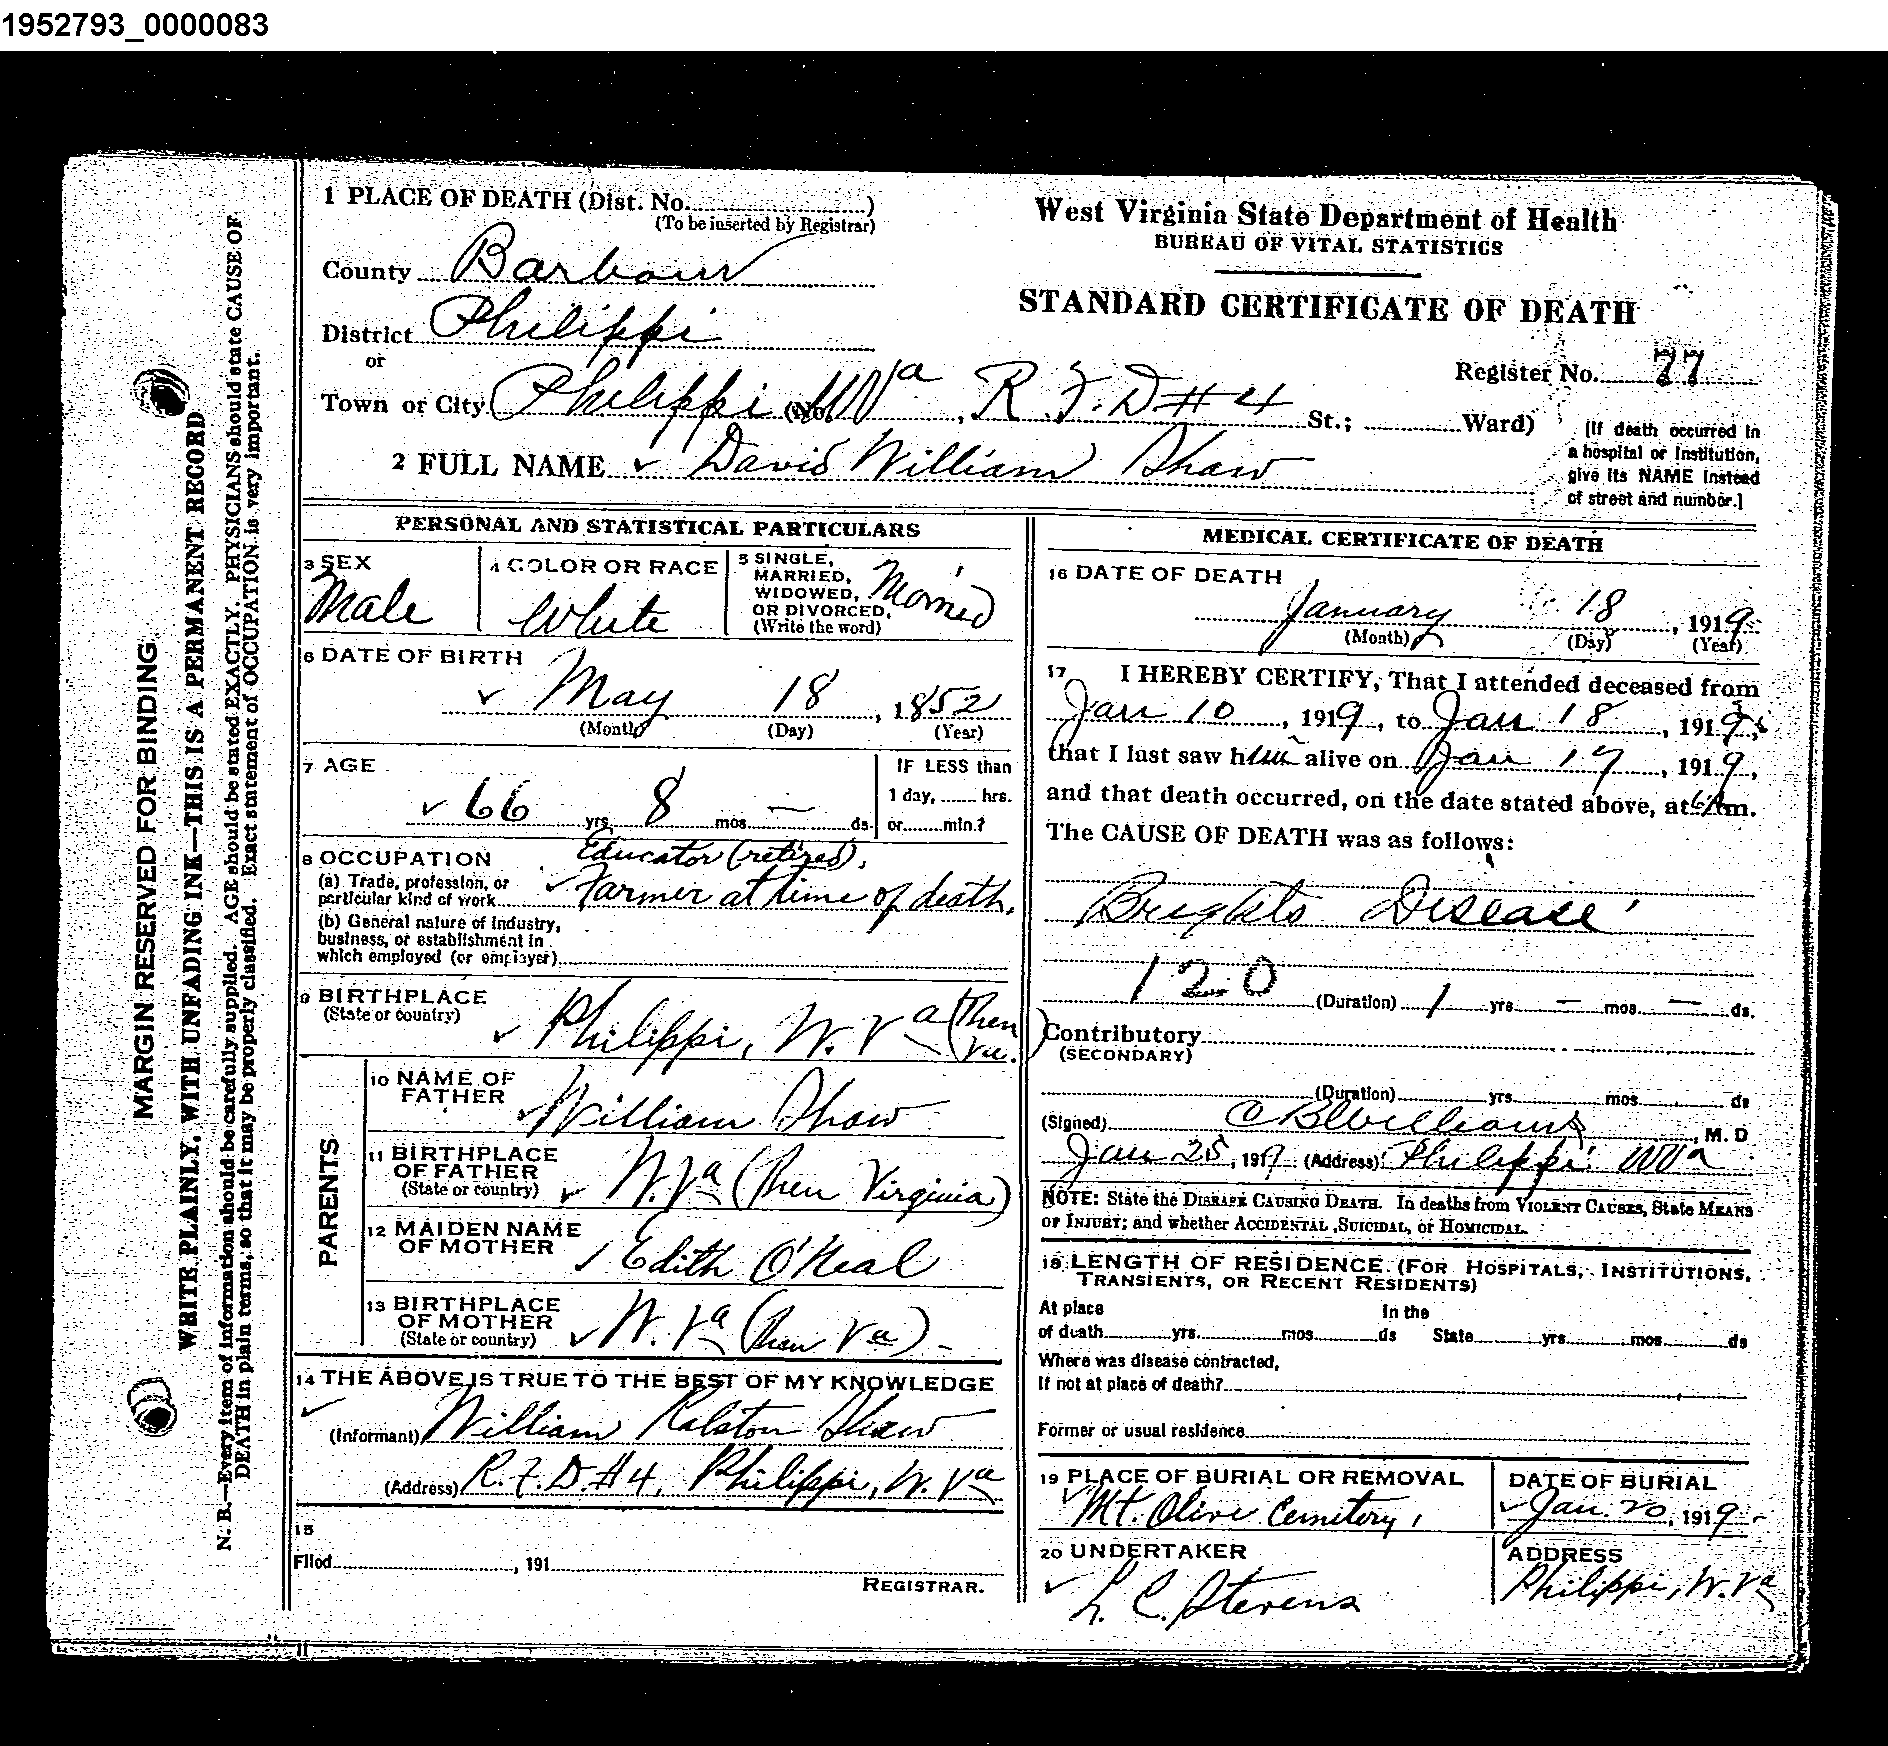 1952793_0000083
MARGIN RESERVED FOR BINDING
WRITE PLAINLY, WITH UNFADING INK—THIS IS A PERMANENT RECORD
N. B.—Every item of information should be carefully supplied. AGE should be stated EXACTLY. PHYSICIANS should state CAUSE OF
DEATH in plain terms, so that it may be properly classified. Exact statement of OCCUPATION is very important.
1 PLACE OF DEATH (Dist. No. )
(To be inserted by Registrar)
County Barbour
District Philippi
or
Town or City Philippi (No. W Va , R. F. D # 4 St.; Ward)
2 FULL NAME David William Shaw
West Virginia State Department of Health
BUREAU OF VITAL STATISTICS
STANDARD CERTIFICATE OF DEATH
Register No. 77
[If death occurred in
a hospital or institution,
give its NAME instead
of street and number.]
PERSONAL AND STATISTICAL PARTICULARS
3 SEX
Male
4 COLOR OR RACE
White
5 SINGLE,
MARRIED,
WIDOWED,
OR DIVORCED,
(Write the word)
Married
6 DATE OF BIRTH
May 18 , 1852
(Month) (Day) (Year)
7 AGE
66 yrs. 8 mos. — ds.
IF LESS than
1 day, hrs.
or min.?
8 OCCUPATION
(a) Trade, profession, or
particular kind of work
Educator (retired),
Farmer at time of death.
(b) General nature of industry,
business, or establishment in
which employed (or employer)
9 BIRTHPLACE
(State or country)
Philippi, W. Va (Then Va.)
PARENTS
10 NAME OF
FATHER
William Shaw
11 BIRTHPLACE
OF FATHER
(State or country)
W. Va (Then Virginia)
12 MAIDEN NAME
OF MOTHER
Edith O'Neal
13 BIRTHPLACE
OF MOTHER
(State or country)
W. Va (Then Va)
14 THE ABOVE IS TRUE TO THE BEST OF MY KNOWLEDGE
(Informant) William Ralston Shaw
(Address) R. F. D. #4, Philippi, W. Va
15
Filed , 191
REGISTRAR.
MEDICAL CERTIFICATE OF DEATH
16 DATE OF DEATH
January 18 , 1919
(Month) (Day) (Year)
17 I HEREBY CERTIFY, That I attended deceased from
Jan 10 , 1919, to Jan 18 , 1919,
that I last saw him alive on Jan 17 , 1919,
and that death occurred, on the date stated above, at m.
The CAUSE OF DEATH was as follows:
Brights Disease
120
(Duration) 1 yrs. — mos. — ds.
Contributory
(SECONDARY)
(Duration) yrs. mos. ds
(Signed) C B Williams , M. D
Jan 25, 1919. (Address) Philippi W Va
NOTE: State the DISEASE CAUSING DEATH. In deaths from VIOLENT CAUSES, State MEANS
OF INJURY; and whether ACCIDENTAL, SUICIDAL, or HOMICIDAL.
18 LENGTH OF RESIDENCE (FOR HOSPITALS, INSTITUTIONS,
TRANSIENTS, OR RECENT RESIDENTS)
At place
of death yrs. mos. ds
In the
State yrs. mos. ds
Where was disease contracted,
If not at place of death?
Former or usual residence
19 PLACE OF BURIAL OR REMOVAL
Mt. Olive Cemetery,
DATE OF BURIAL
Jan. 20, 1919.
20 UNDERTAKER
L. C. Stevens
ADDRESS
Philippi, W. Va